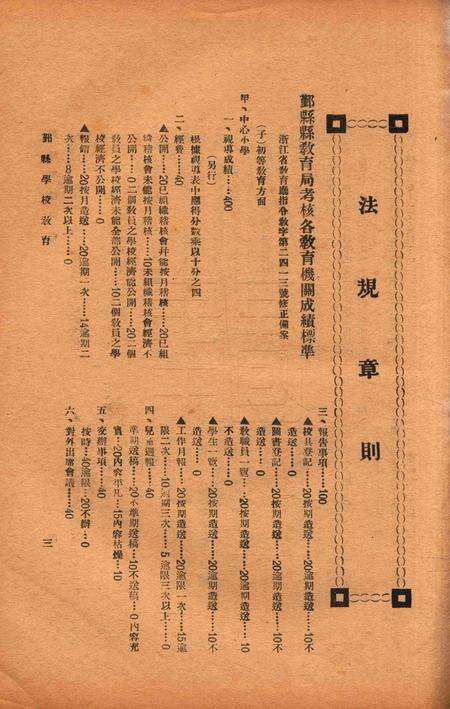 法規章則
鄞縣縣教育局考核各教育機關成績標準
浙江省教育廳指令教字第二四一三號修正備案
(子)初等教育方面
甲、中心小學
一、視導成績……400
(另行)
根據視導表中應得分數乘以十分之四
二、經費……40
▲公開……20已組織稽核會幷能按月稽核……20已組
織稽核會未能按月稽核……10未組織稽核會經濟不
公開……0二個教員之學校經濟能公開……20二個
教員之學校經濟未能全部公開……10二個教員之學
校經濟不公開……0
▲報銷……20按月造送……20逾期一次……14逾期二
次……8逾期三次以上……0
三、報告事項……160
▲校具登記……20按期造送……20逾期造送……10不
造送……0
▲圖書登記……20按期造送……20逾期造送……10不
造送……0
▲教職員一覽……20按期造送……20逾期造送……10
不造送……0
▲學生一覽……20按期造送……20逾期造送……10不
造送……0
▲工作月報……20按期造送……20逾限一次……15逾
限二次……10逾期三次……5逾限三次以上……0
四、兒童週報……40
準期送稿……20不準期送稿……10不送稿……0內容充
實……20內容平凡……15內容枯燥……10
五、交辦事項……40
按時……40逾限……20不辦……0
六、對外出席會議……40
鄞縣學校教育
三